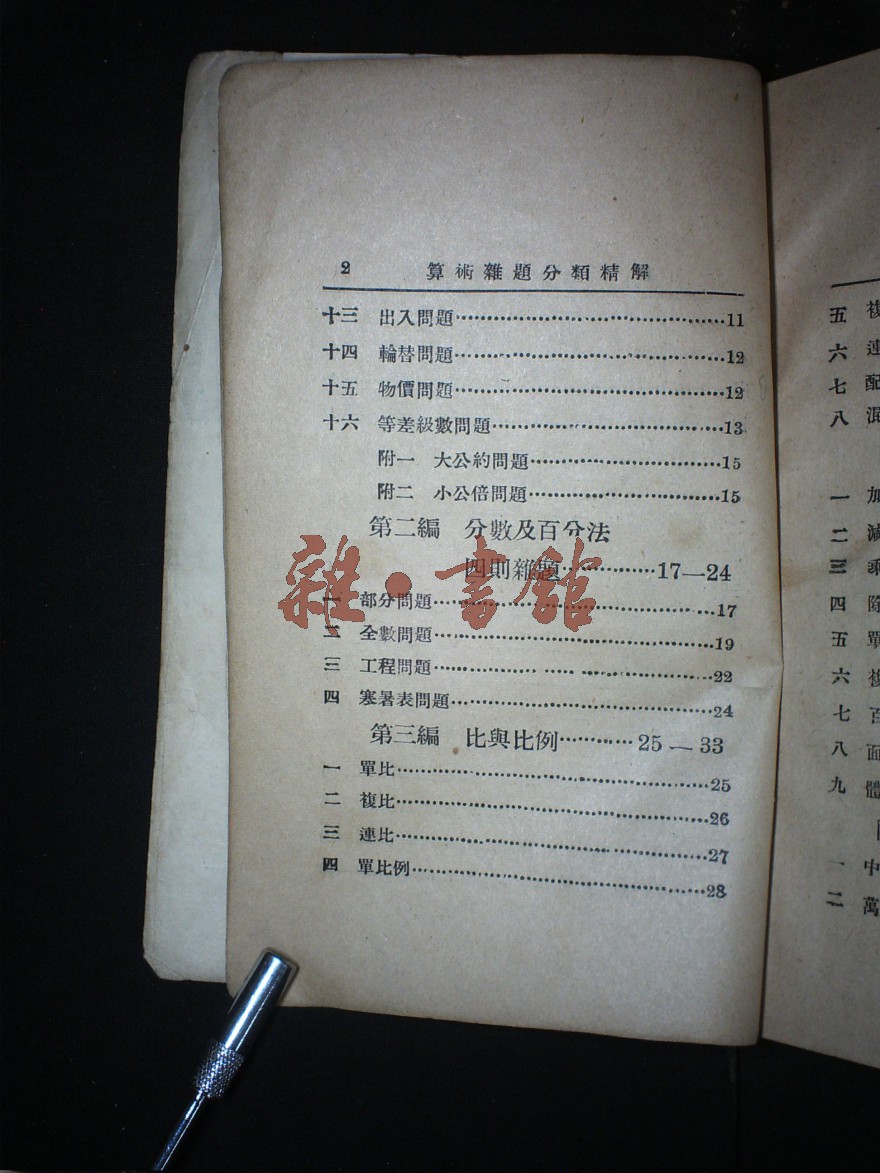 2 算術雜題分類精解
十三 出入問題……………………………11
十四 輪替問題……………………………12
十五 物價問題……………………………12
十六 等差級數問題………………………13
附一 大公約問題……………………15
附二 小公倍問題……………………15
第二編 分數及百分法
四則雜題…………17—24
一 部分問題……………………………17
二 全數問題……………………………19
三 工程問題……………………………22
四 寒暑表問題…………………………24
第三編 比與比例………25—33
一 單比…………………………………25
二 複比…………………………………26
三 連比…………………………………27
四 單比例………………………………28
雜·書館
五 複
六 連
七 配
八 混
一 加
二 減
三 乘
四 除
五 單
六 複
七 百
八 面
九 體
一 中
二 萬